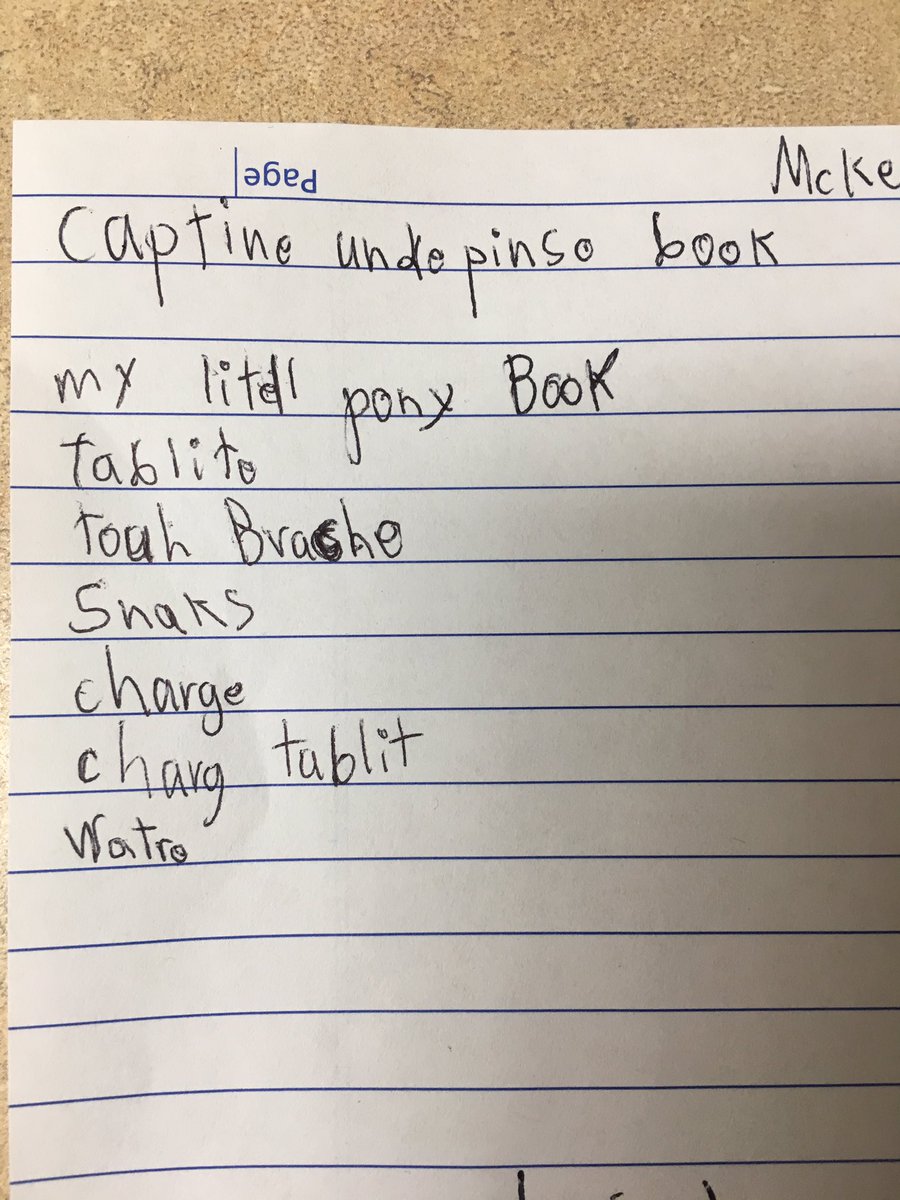 Page
McKe
Captine undepinso book
my litdl pony Book
tablite
touh Bracshe
Snaks
charge
charg tablit
Watre